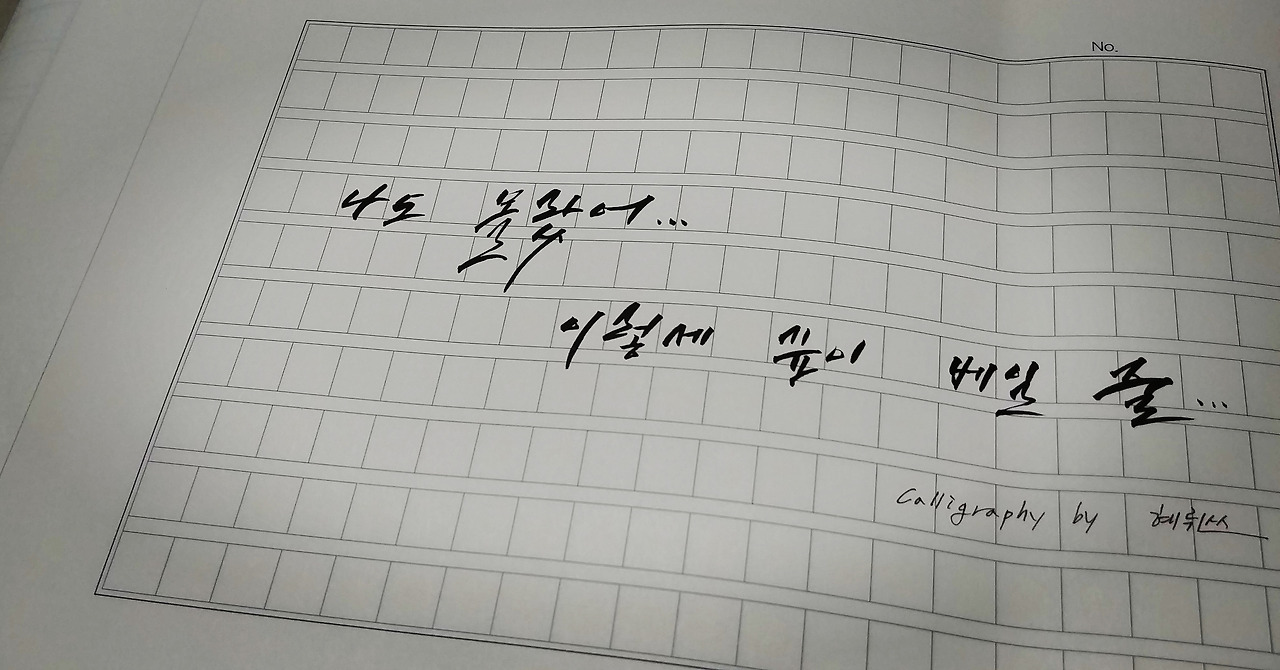 No.
나도 몰랐어...
이렇게 깊이 베일 줄...
Calligraphy by